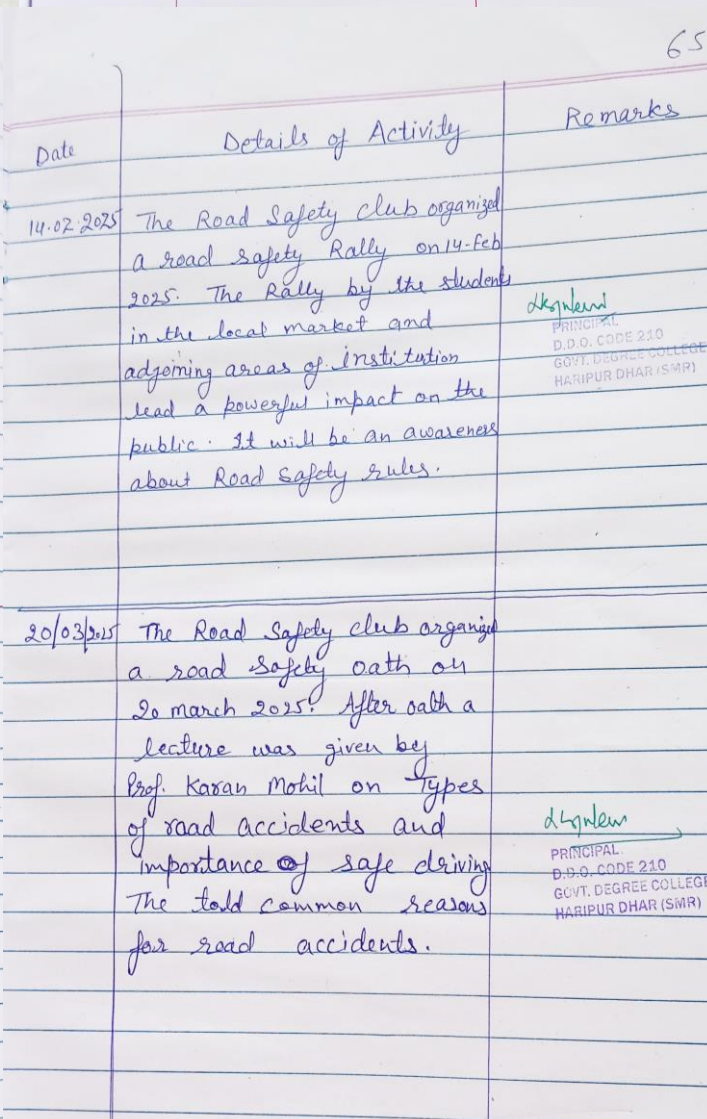 65
Date
Details of Activity
Remarks
14.02.2025
The Road Safety club organized
a road safety Rally on 14-Feb
2025. The Rally by the students
in the local market and
adjoining areas of institution
lead a powerful impact on the
public. It will be an awareness
about Road Safety rules.
PRINCIPAL
D.D.O. CODE 210
GOVT. DEGREE COLLEGE
HARIPUR DHAR (SMR)
20/03/2025
The Road Safety club organized
a road safety oath on
20 march 2025. After oath a
lecture was given by
Prof. Karan Mohil on Types
of road accidents and
importance of safe driving
The told common reasons
for road accidents.
PRINCIPAL
D.D.O. CODE 210
GOVT. DEGREE COLLEGE
HARIPUR DHAR (SMR)